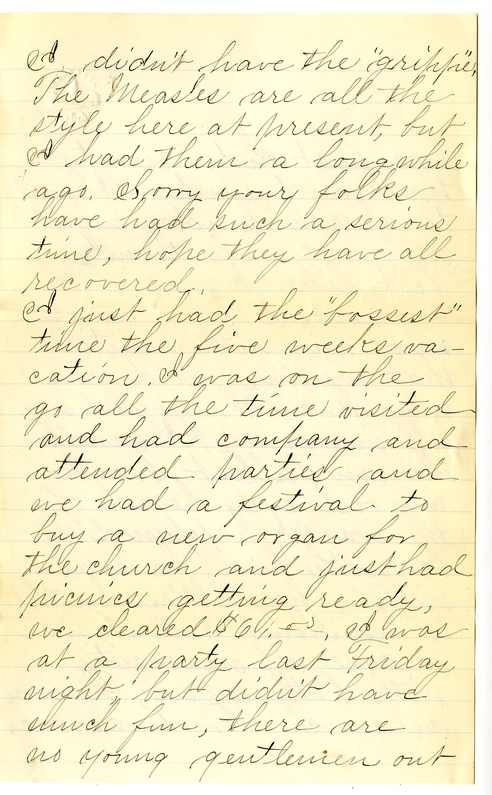 I didn't have the "grippe".
The Measles are all the
style here at present, but
I had them a long while
ago. Sorry your folks
have had such a serious
time, hope they have all
recovered.
I just had the "bossest"
time the five weeks va-
cation. I was on the
go all the time visited
and had company and
attended parties and
we had a festival to
buy a new organ for
the church and just had
picnics getting ready,
we cleared I was
at a party last Friday
night, but didn't have
much fun, there are
no young gentlemen out